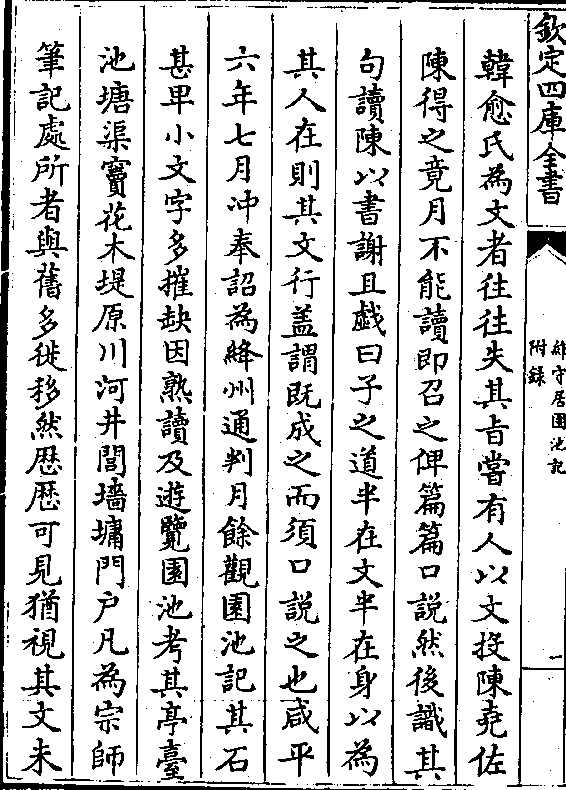 欽定四庫全書
絳守居園池記
附錄
一
韓愈氏為文者往往失其旨嘗有人以文投陳堯佐
陳得之竟月不能讀即召之俾篇篇口說然後識其
句讀陳以書謝且戲曰子之道半在文半在身以為
其人在則其文行盖謂既成之而須口說之也咸平
六年七月冲奉詔為絳州通判月餘觀園池記其石
甚卑小文字多摧缺因熟讀及遊覽園池考其亭臺
池塘渠竇花木堤原川河井閭墻墉門户凡為宗師
筆記處所者與舊多徙移然歷歷可見猶視其文未